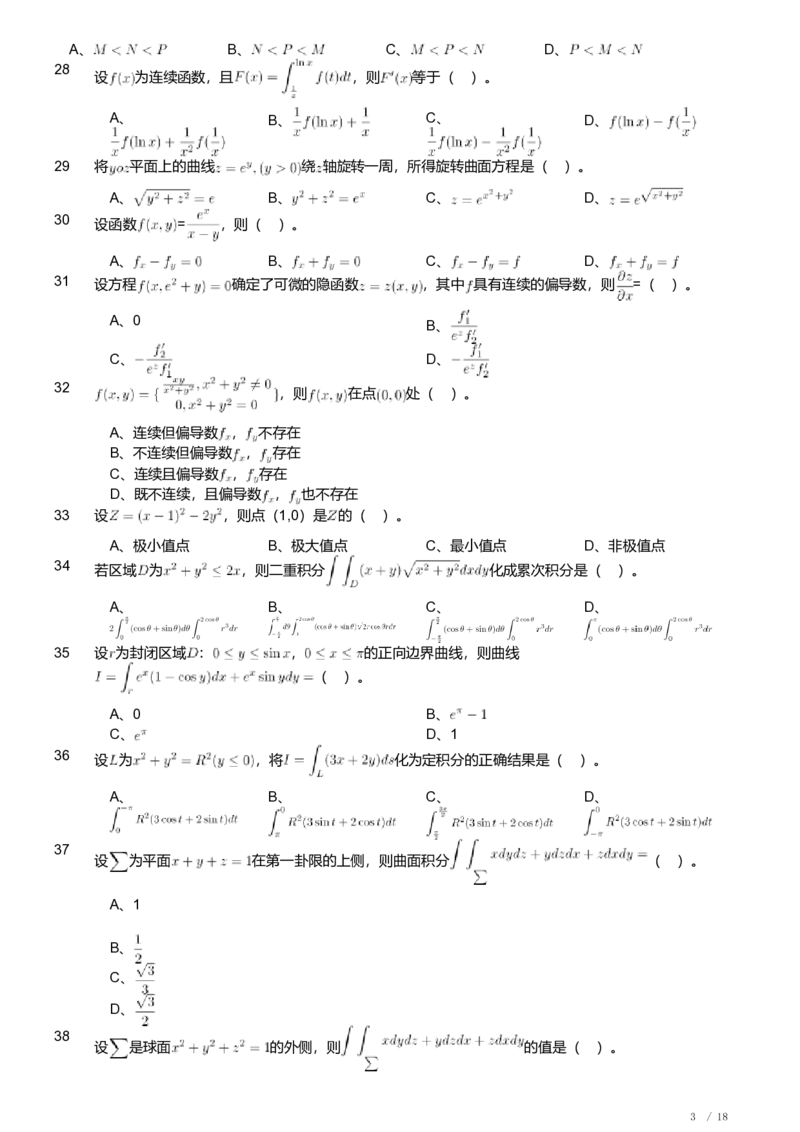 A、M < N < P B、N < P < M C、M < P < N D、P < M < N
28 设f(x)为连续函数，且F(x) = ∫_{1/x}^{ln x} f(t)dt，则F′(x)等于（ ）。
A、1/x f(ln x) + 1/x² f(1/x) B、1/x f(ln x) + 1/x C、1/x f(ln x) − 1/x² f(1/x) D、f(ln x) − f(1/x)
29 将yoz平面上的曲线z = e^y, (y > 0)绕z轴旋转一周，所得旋转曲面方程是（ ）。
A、√(y² + z²) = e B、y² + z² = e^x C、z = e^{x²+y²} D、z = e^{√(x²+y²)}
30 设函数f(x, y)= e^x/(x − y)，则（ ）。
A、f_x − f_y = 0 B、f_x + f_y = 0 C、f_x − f_y = f D、f_x + f_y = f
31 设方程f(x, e² + y) = 0确定了可微的隐函数z = z(x, y)，其中f具有连续的偏导数，则∂z/∂x=（ ）。
A、0 B、f′₁/(e^z f′₂)
C、−f′₂/(e^z f′₁) D、−f′₁/(e^z f′₂)
32 f(x, y) = { xy/(x²+y²), x² + y² ≠ 0
0, x² + y² = 0 }，则f(x, y)在点(0, 0)处（ ）。
A、连续但偏导数f_x，f_y不存在
B、不连续但偏导数f_x，f_y存在
C、连续且偏导数f_x，f_y存在
D、既不连续，且偏导数f_x，f_y也不存在
33 设Z = (x − 1)² − 2y²，则点（1,0）是Z的（ ）。
A、极小值点 B、极大值点 C、最小值点 D、非极值点
34 若区域D为x² + y² ≤ 2x，则二重积分∫∫_D (x + y)√(x² + y²)dxdy化成累次积分是（ ）。
A、2∫_0^{π/2} (cos θ + sin θ)dθ ∫_0^{2 cos θ} r³dr B、∫_{−π/2}^{π/2} dθ ∫^{2 cos θ} (cos θ + sin θ)√2r cos θrdr C、∫_{−π/2}^{π/2} (cos θ + sin θ)dθ ∫_0^{2 cos θ} r³dr D、∫_0^{π} (cos θ + sin θ)dθ ∫_0^{2 cos θ} r³dr
35 设r为封闭区域D：0 ≤ y ≤ sin x，0 ≤ x ≤ π的正向边界曲线，则曲线
I = ∫_r e^x(1 − cos y)dx + e^x sin ydy =（ ）。
A、0 B、e^π − 1
C、e^π D、1
36 设L为x² + y² = R²(y ≤ 0)，将I = ∫_L (3x + 2y)ds化为定积分的正确结果是（ ）。
A、∫_0^{−π} R²(3 cos t + 2 sin t)dt B、∫_π^0 R²(3 sin t + 2 cos t)dt C、∫_{π/2}^{3π/2} R²(3 sin t + 2 cos t)dt D、∫_{−π}^0 R²(3 cos t + 2 sin t)dt
37 设∑为平面x + y + z = 1在第一卦限的上侧，则曲面积分∫∫_∑ xdydz + ydzdx + zdxdy =（ ）。
A、1
B、1/2
C、√3/3
D、√3/2
38 设∑是球面x² + y² + z² = 1的外侧，则∫∫_∑ xdydz + ydzdx + zdxdy的值是（ ）。
3 / 18